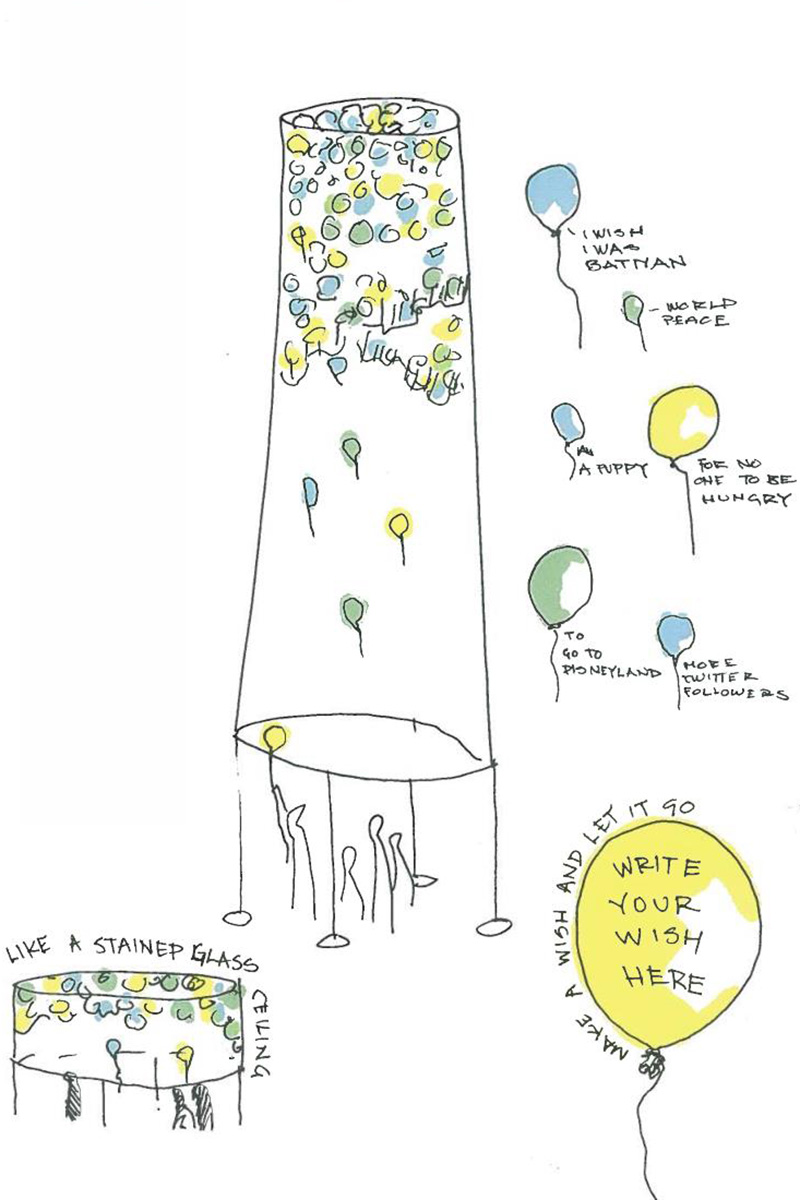 I WISH
I WAS
BATMAN
WORLD
PEACE
A PUPPY
FOR NO
ONE TO BE
HUNGRY
TO
GO TO
DISNEYLAND
MORE
TWITTER
FOLLOWERS
MAKE A WISH AND LET IT GO
WRITE
YOUR
WISH
HERE
LIKE A STAINED GLASS
CEILING